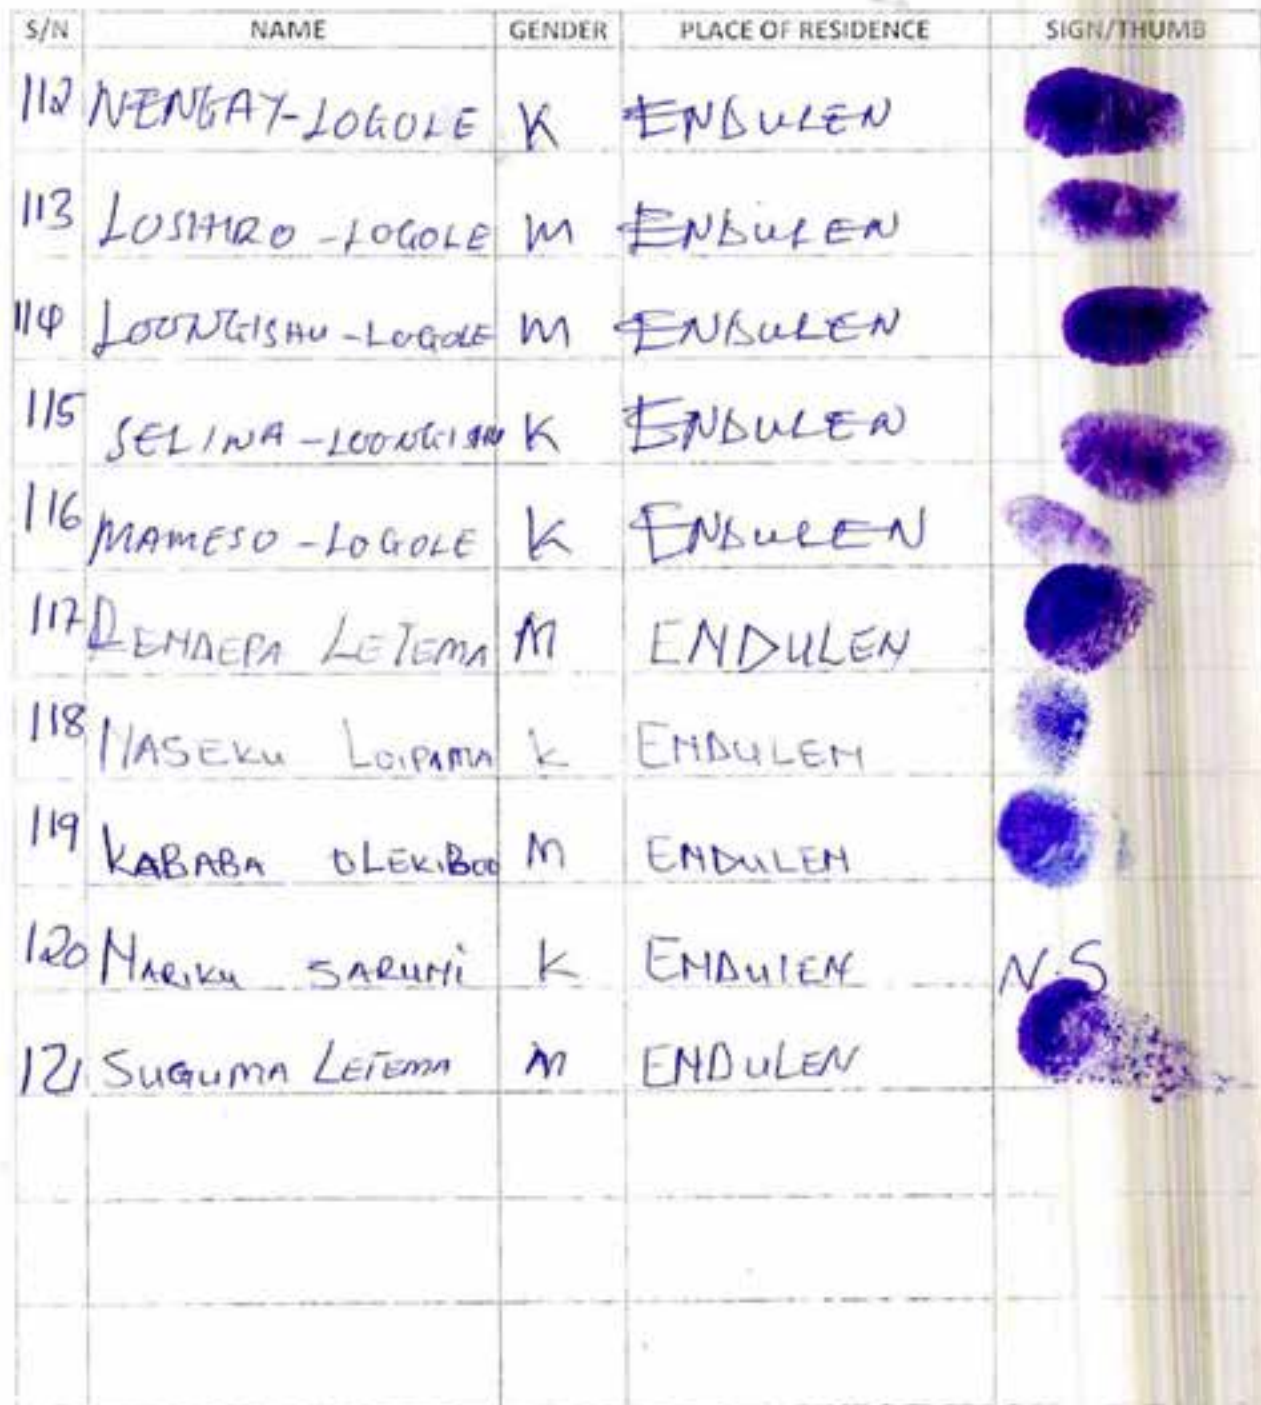 S/N NAME GENDER PLACE OF RESIDENCE SIGN/THUMB
112 NENGAY-LOGOLE K ENDULEN
113 LOSHIRO-LOGOLE M ENDULEN
114 LOONGISHU-LOGOLE M ENDULEN
115 SELINA-LOONGISHU K ENDULEN
116 MAMESO-LOGOLE K ENDULEN
117 LETEMA M ENDULEN
118 NASEKU LOIPAMA K ENDULEN
119 KABABA OLEKIBOO M ENDULEN
120 NARIKU SARUNI K ENDULEN N.S
121 SUGUMA LETEMA M ENDULEN